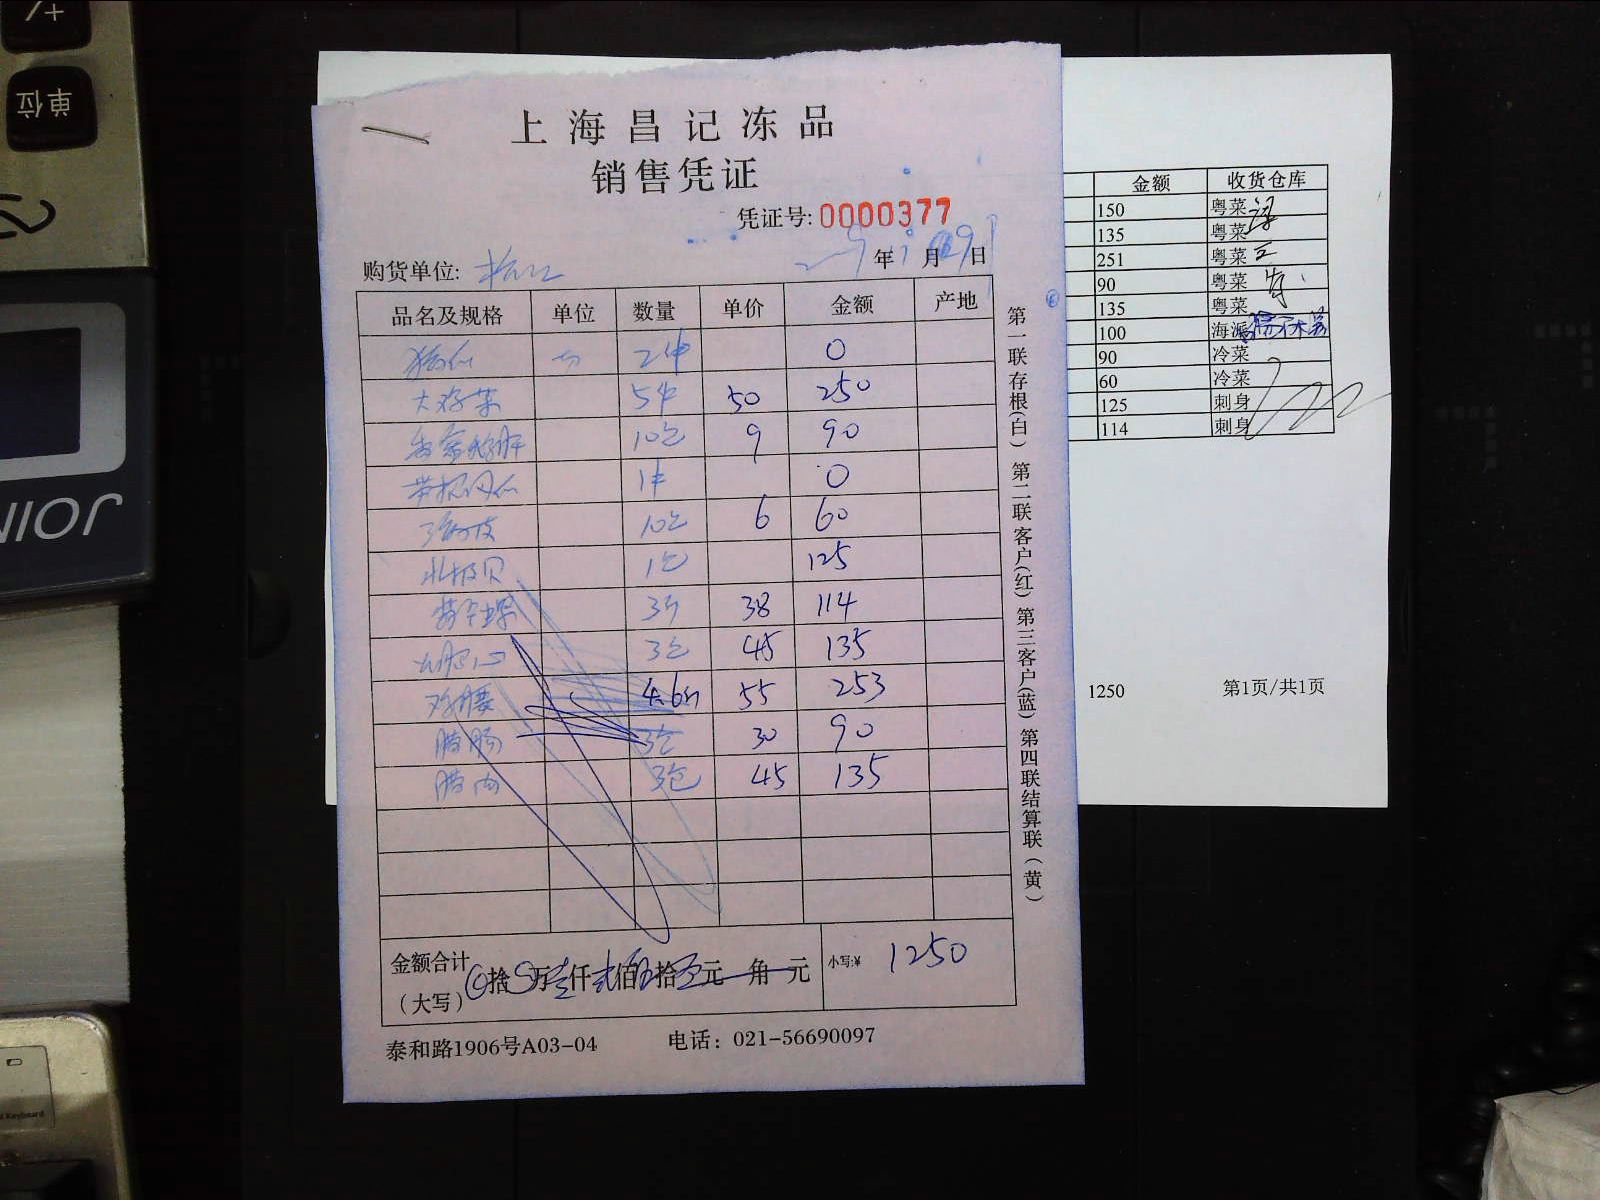 上海昌记冻品
销售凭证
凭证号: 0000377
购货单位:
年 月 日
品名及规格 单位 数量 单价 金额 产地
2件 0
5件 50 250
10包 9 90
1件 0
10包 6 60
北极贝 1包 125
3斤 38 114
3包 45 135
鸡腰 4.6斤 55 253
腊肠 3包 30 90
腊肉 3包 45 135
金额合计
(大写) 拾 万壹仟贰佰伍拾 元 角 元
小写:¥ 1250
泰和路1906号A03-04 电话: 021-56690097
第一联存根(白) 第二联客户(红) 第三客户(蓝) 第四联结算联(黄)
金额 收货仓库
150 粤菜
135 粤菜
251 粤菜
90 粤菜
135 粤菜
100 海派
90 冷菜
60 冷菜
125 刺身
114 刺身
1250 第1页/共1页
单位
JOIN